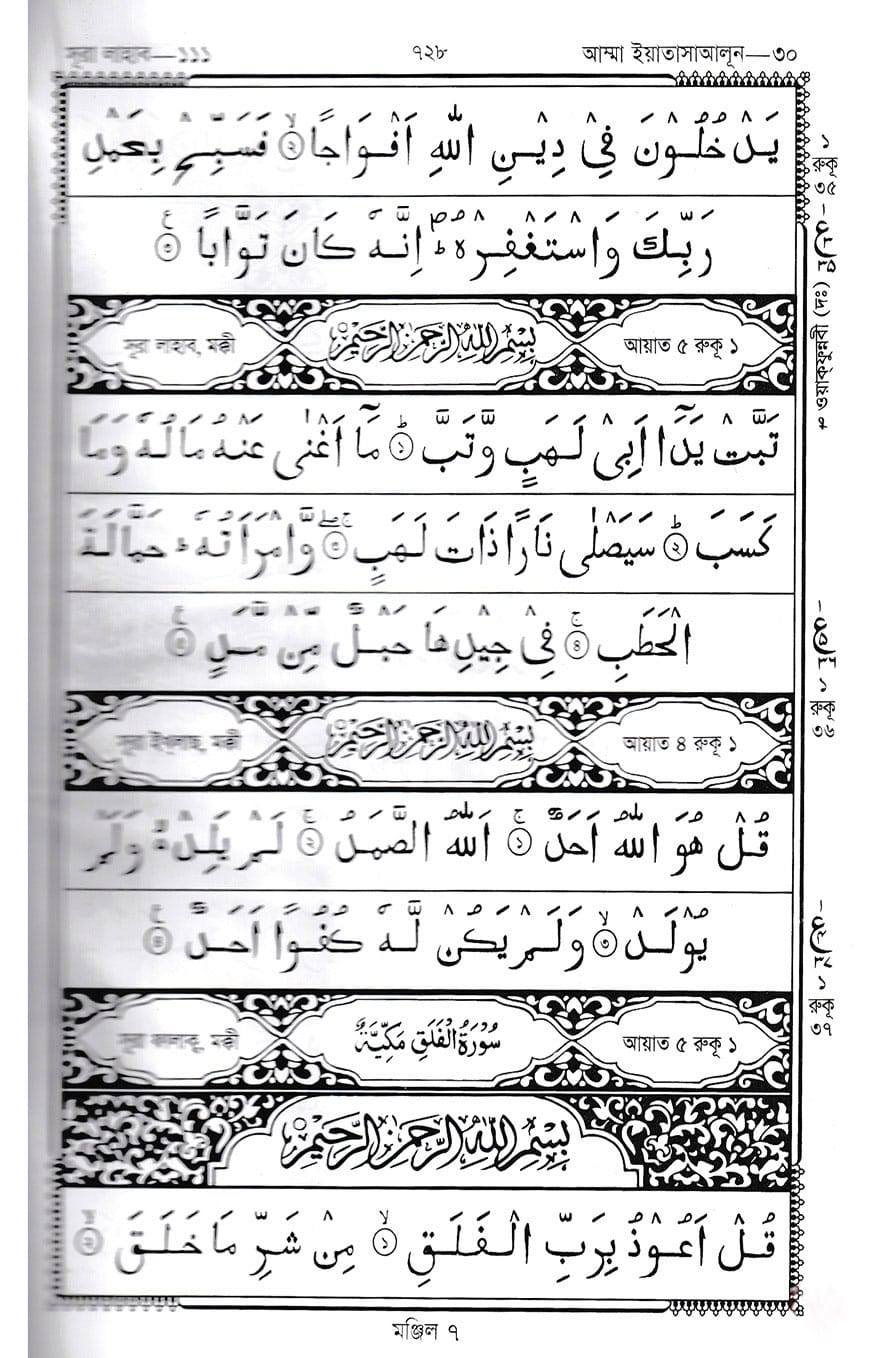 সূরা লাহাব—১১১ ৭২৮ আম্মা ইয়াতাসাআলূন—৩০
يَدْخُلُوْنَ فِيْ دِيْنِ اللّٰهِ اَفْوَاجًا ۙ﴿۲﴾ فَسَبِّحْ بِحَمْدِ
رَبِّكَ وَاسْتَغْفِرْهُ ؕ اِنَّهٗ كَانَ تَوَّابًا ﴿۳﴾
সূরা লাহাব, মক্কী بِسْمِ اللّٰهِ الرَّحْمٰنِ الرَّحِيْمِ আয়াত ৫ রুকূ ১
تَبَّتْ يَدَاۤ اَبِيْ لَهَبٍ وَّتَبَّ ؕ﴿۱﴾ مَاۤ اَغْنٰى عَنْهُ مَالُهٗ وَمَا
كَسَبَ ؕ﴿۲﴾ سَيَصْلٰى نَارًا ذَاتَ لَهَبٍ ﴿۳﴾ وَّامْرَاَتُهٗ ؕ حَمَّالَةَ
الْحَطَبِ ۚ﴿۴﴾ فِيْ جِيْدِهَا حَبْلٌ مِّنْ مَّسَدٍ ﴿۵﴾
সূরা ইখলাছ, মক্কী بِسْمِ اللّٰهِ الرَّحْمٰنِ الرَّحِيْمِ আয়াত ৪ রুকূ ১
قُلْ هُوَ اللّٰهُ اَحَدٌ ۚ﴿۱﴾ اَللّٰهُ الصَّمَدُ ۚ﴿۲﴾ لَمْ يَلِدْ ۙ۬ وَلَمْ
يُوْلَدْ ۙ﴿۳﴾ وَلَمْ يَكُنْ لَّهٗ كُفُوًا اَحَدٌ ﴿۴﴾
সূরা ফালাক্ব, মক্কী سُوْرَةُ الْفَلَقِ مَكِّيَّةٌ আয়াত ৫ রুকূ ১
بِسْمِ اللّٰهِ الرَّحْمٰنِ الرَّحِيْمِ
قُلْ اَعُوْذُ بِرَبِّ الْفَلَقِ ۙ﴿۱﴾ مِنْ شَرِّ مَا خَلَقَ ۙ﴿۲﴾
মঞ্জিল ৭
১
রুকূ
৩৫
ওয়াক্‌ফুন্নবী (দঃ)
১
রুকূ
৩৬
১
রুকূ
৩৭